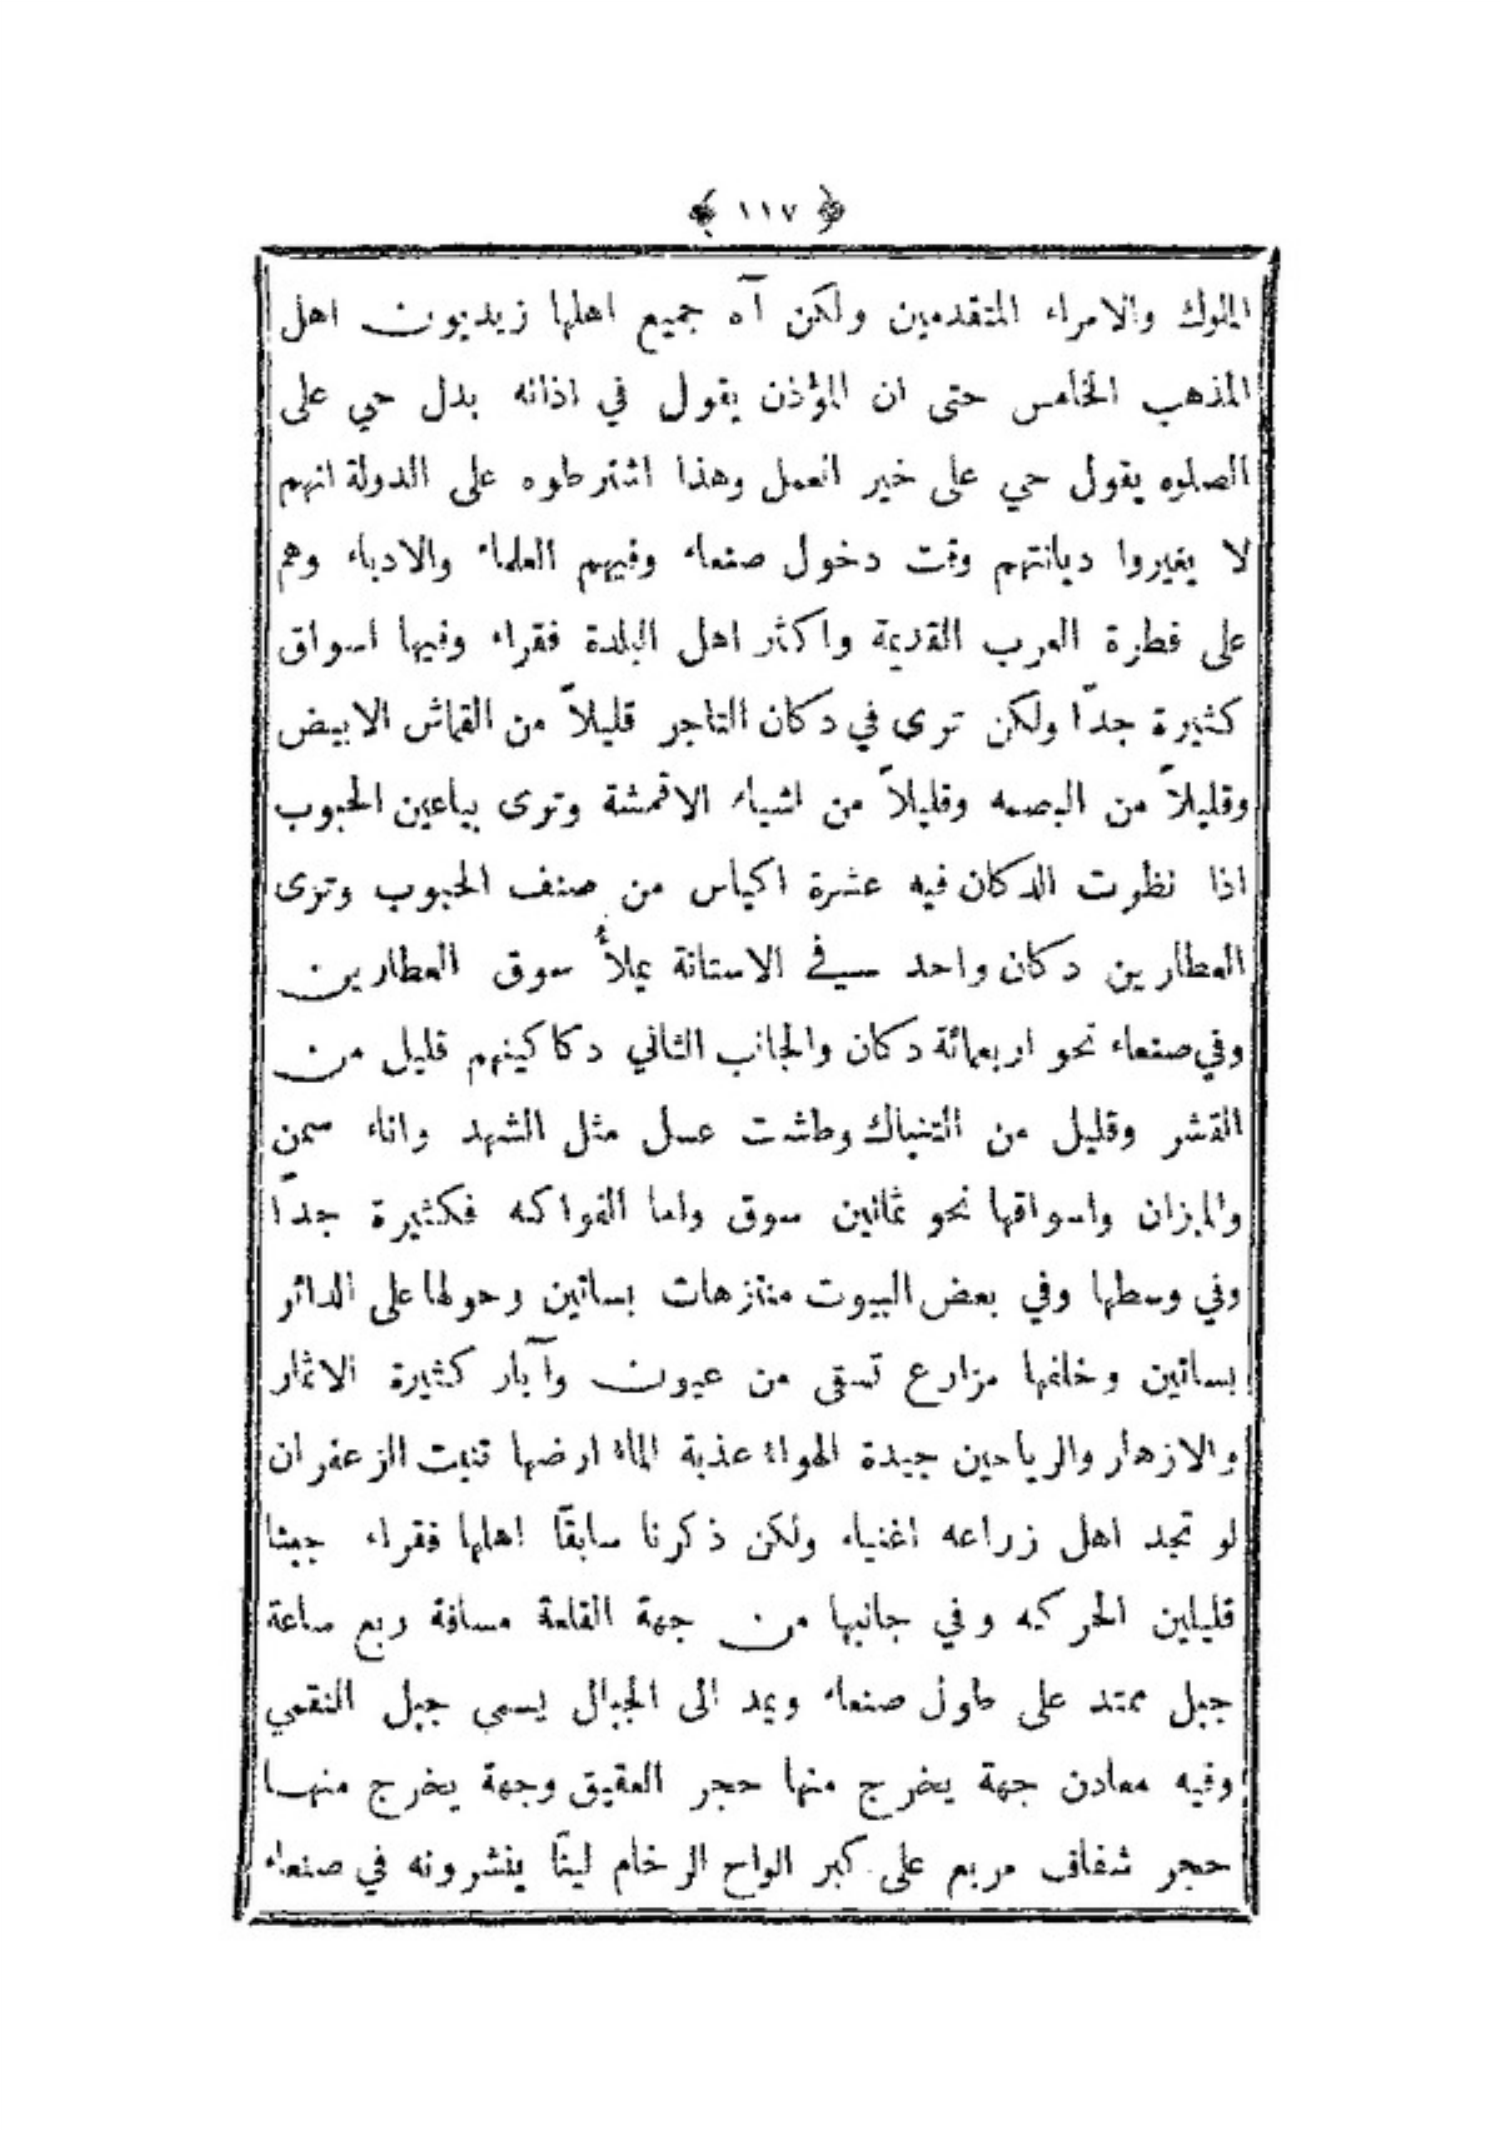 ﴿ ١١٧ ﴾
الملوك والامراء المتقدمين ولكن آه جميع اهلها زيديون اهل
المذهب الخامس حتى ان المؤذن يقول في اذانه بدل حي على
الصلوه يقول حي على خير العمل وهذا اشترطوه على الدولة انهم
لا يغيروا ديانتهم وقت دخول صنعاء وفيهم العلماء والادباء وهم
على فطرة العرب القديمة واكثر اهل البلدة فقراء وفيها اسواق
كثيرة جدًا ولكن ترى في دكان التاجر قليلاً من القماش الابيض
وقليلاً من البصمه وقليلاً من اشياء الاقمشة وترى بياعين الحبوب
اذا نظرت الدكان فيه عشرة اكياس من صنف الحبوب وترى
العطارين دكان واحد في الاستانة يملأ سوق العطارين
وفي صنعاء نحو اربعمائة دكان والجانب الثاني دكاكينهم قليل من
القشر وقليل من التنباك وطشت عسل مثل الشهد واناء سمن
والميزان واسواقها نحو ثمانين سوق واما الفواكه فكثيرة جدًا
وفي وسطها وفي بعض البيوت منتزهات بساتين وحولها على الدائر
بساتين وخلفها مزارع تسقى من عيون وآبار كثيرة الاثمار
والازهار والرياحين جيدة الهواء عذبة الماء ارضها تنبت الزعفران
لو تجد اهل زراعه اغنياء ولكن ذكرنا سابقًا اهلها فقراء جبنا
قليلين الحركه وفي جانبها من جهة القلعة مسافة ربع ساعة
جبل ممتد على طول صنعاء ويمد الى الجبال يسمى جبل النقمي
وفيه معادن جهة يخرج منها حجر العقيق وجهة يخرج منها
حجر شفاف مربع على كبر الواح الرخام لينًا ينشرونه في صنعاء